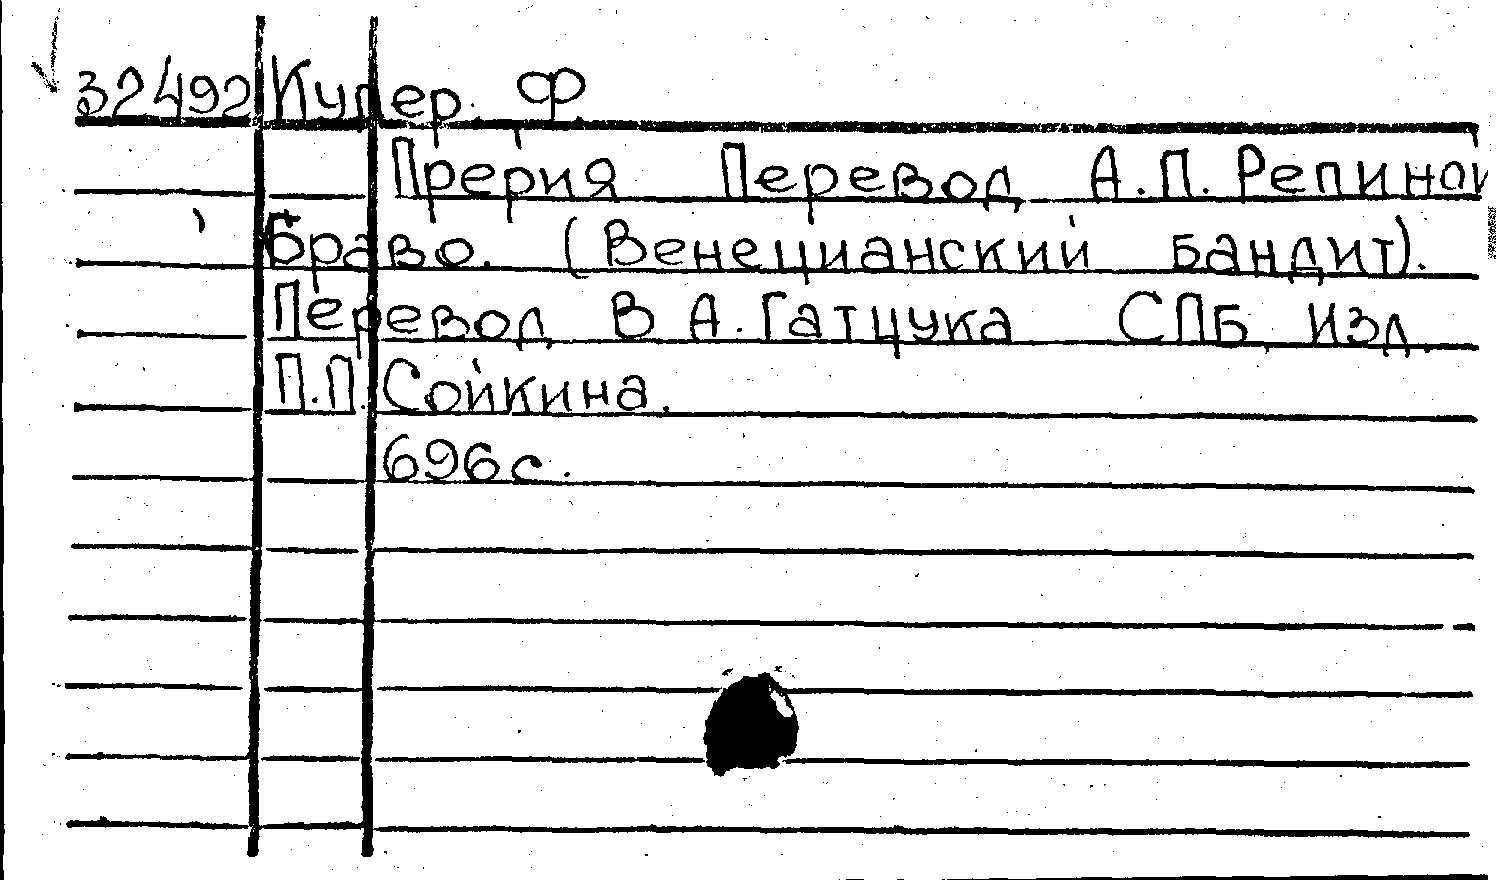 32492 Купер. Ф
Прерия Перевод А.П. Репиной
Браво. (Венецианский бандит).
Перевод В А. Гатцука СПБ. Изд.
П.П. Сойкина.
696 с.